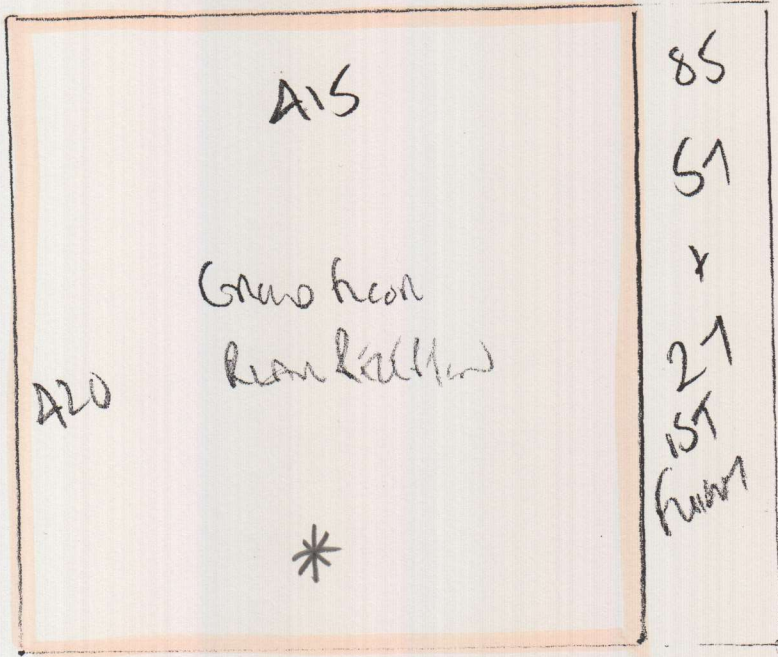 415
Ground Floor
Rear Reception
420
*
85
51
x
21
1ST
Front